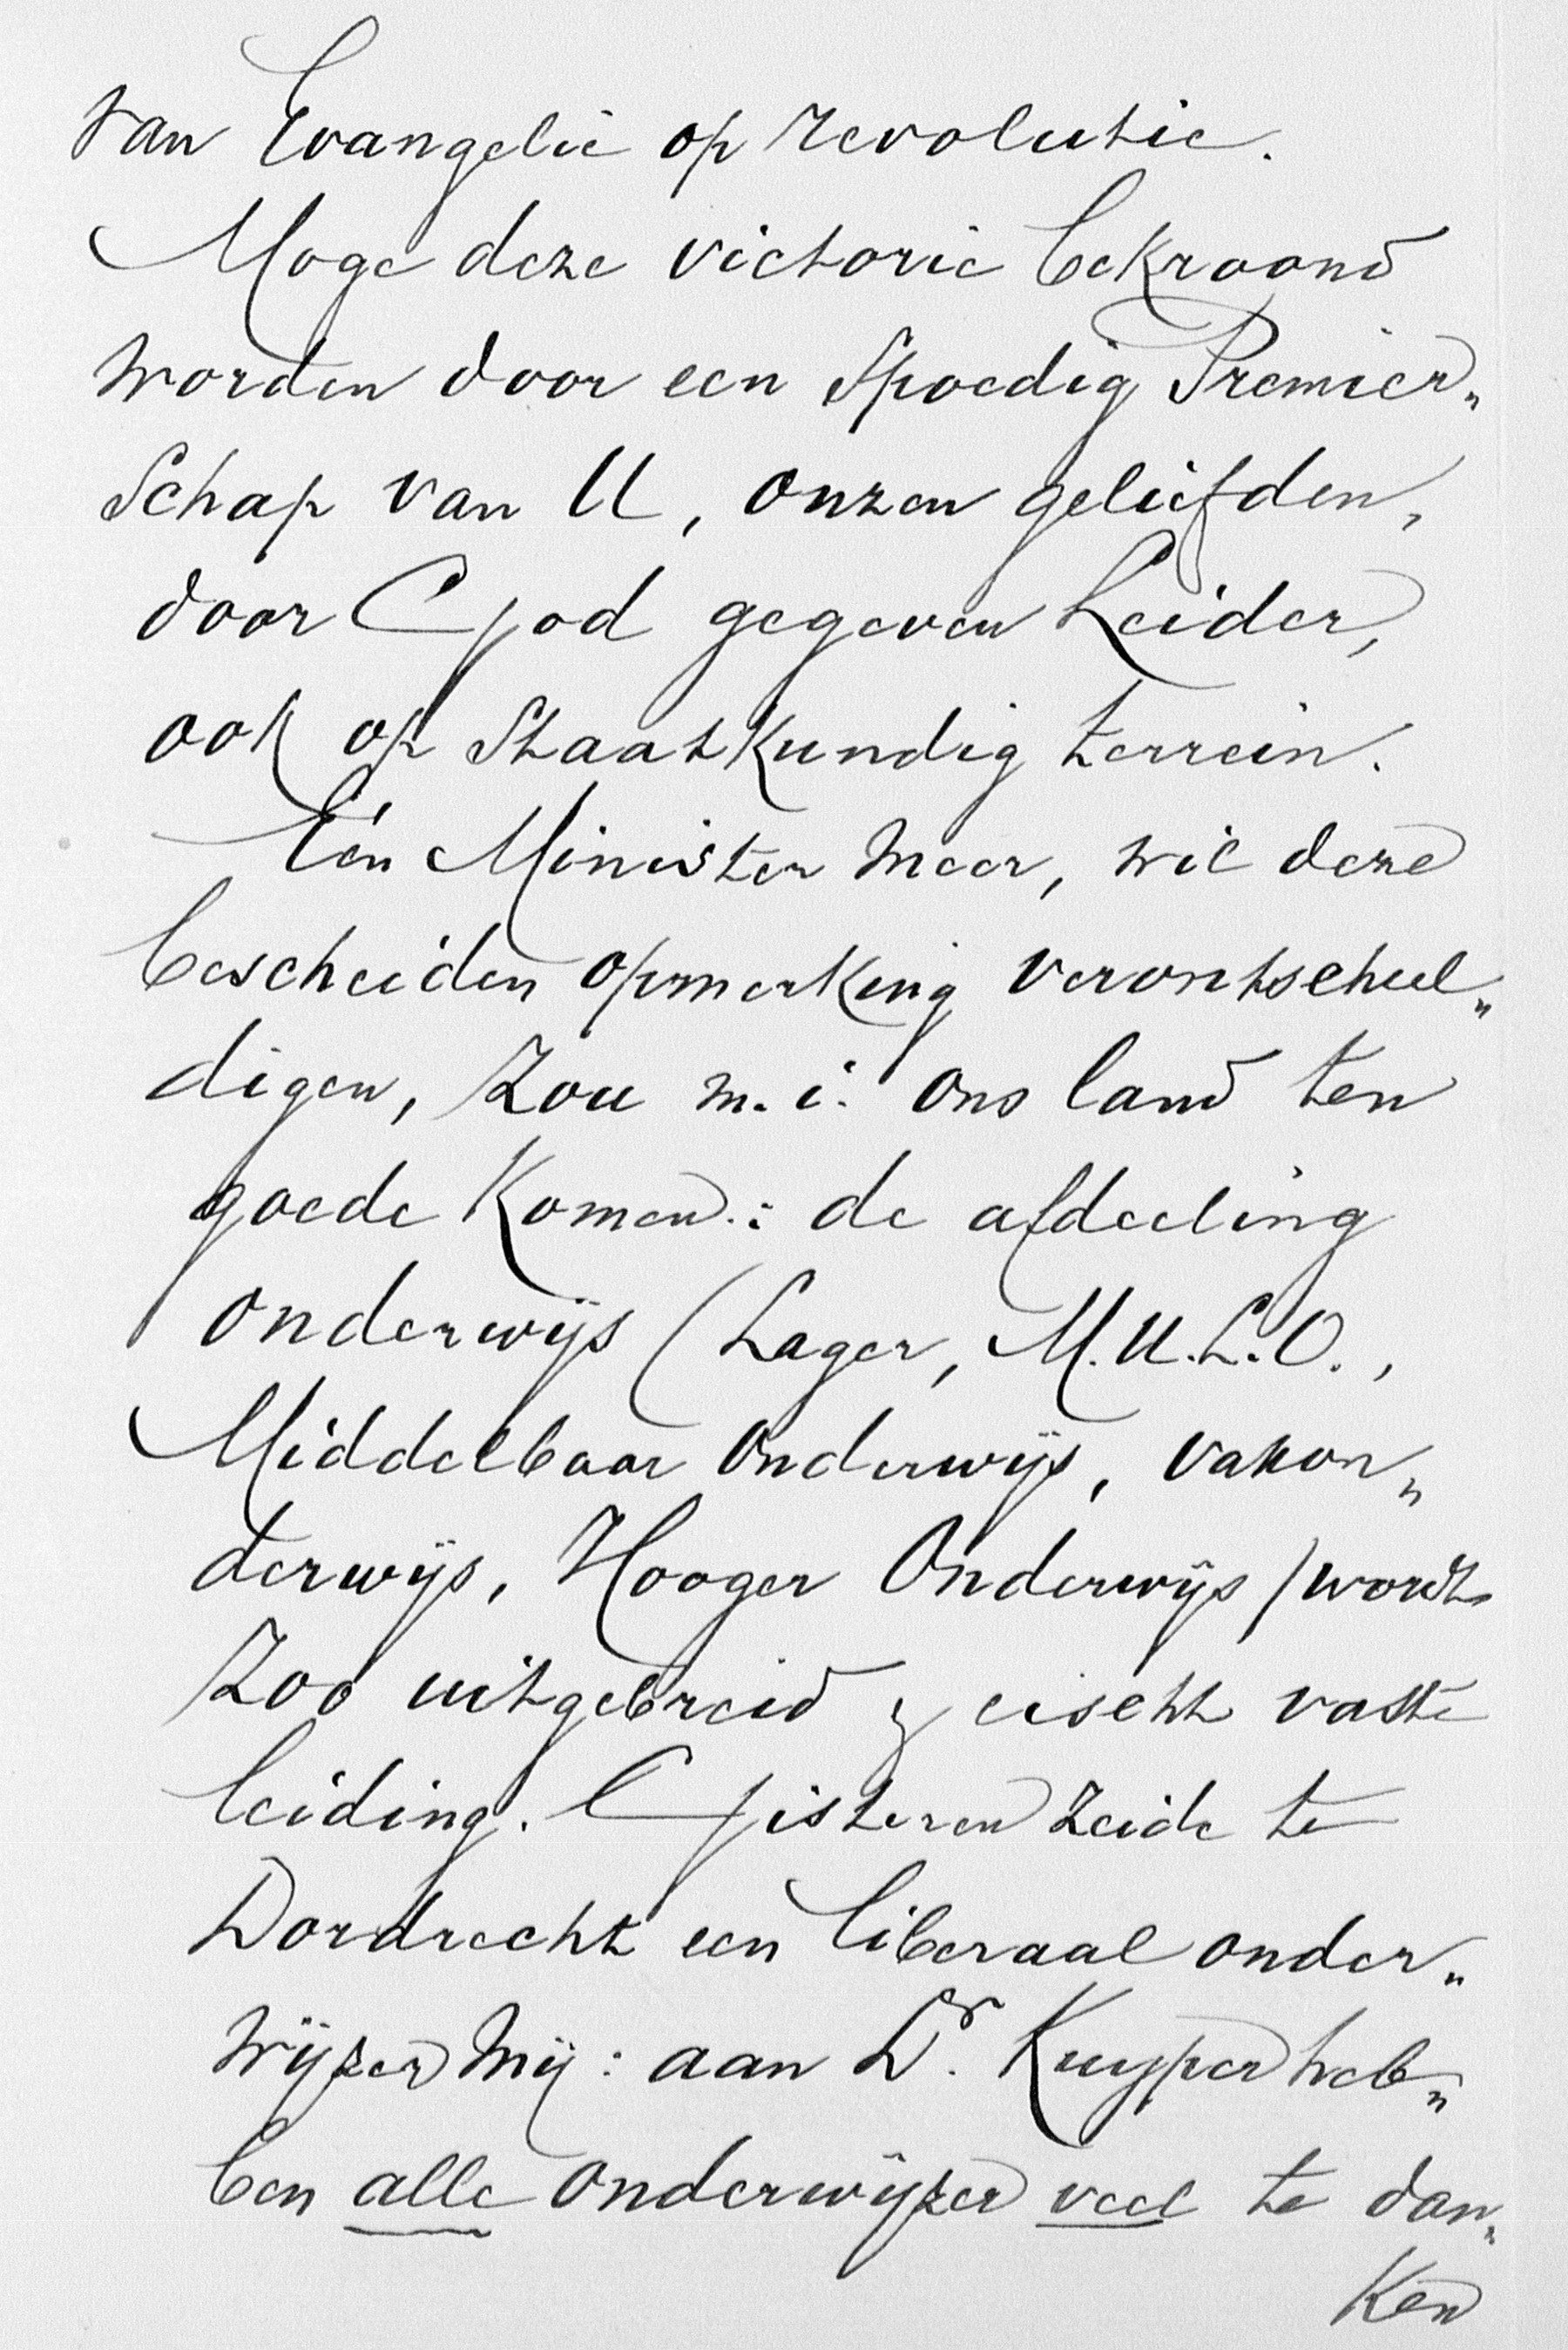 van Evangelie op revolutie.
Moge deze victorie bekroond
worden door een Spoedig Premier„
Schap van U, onzen geliefden,
door God gegeven Leider,
ook op Staatkundig terrein.
Eén Minister meer, wil deze
bescheiden opmerking verontschul„
digen, Zou m.i. ons land ten
goede Komen: de afdeeling
onderwijs (Lager, M.U.L.O.,
Middelbaar onderwijs, vakon„
derwijs, Hooger Onderwijs) wordt
Zoo uitgebreid & eischt vaste
leiding. Gisteren zeide te
Dordrecht een liberaal onder„
wijzer mij: aan Dr. Kuyper heb„
ben alle onderwijzer veel te dan„
Ken